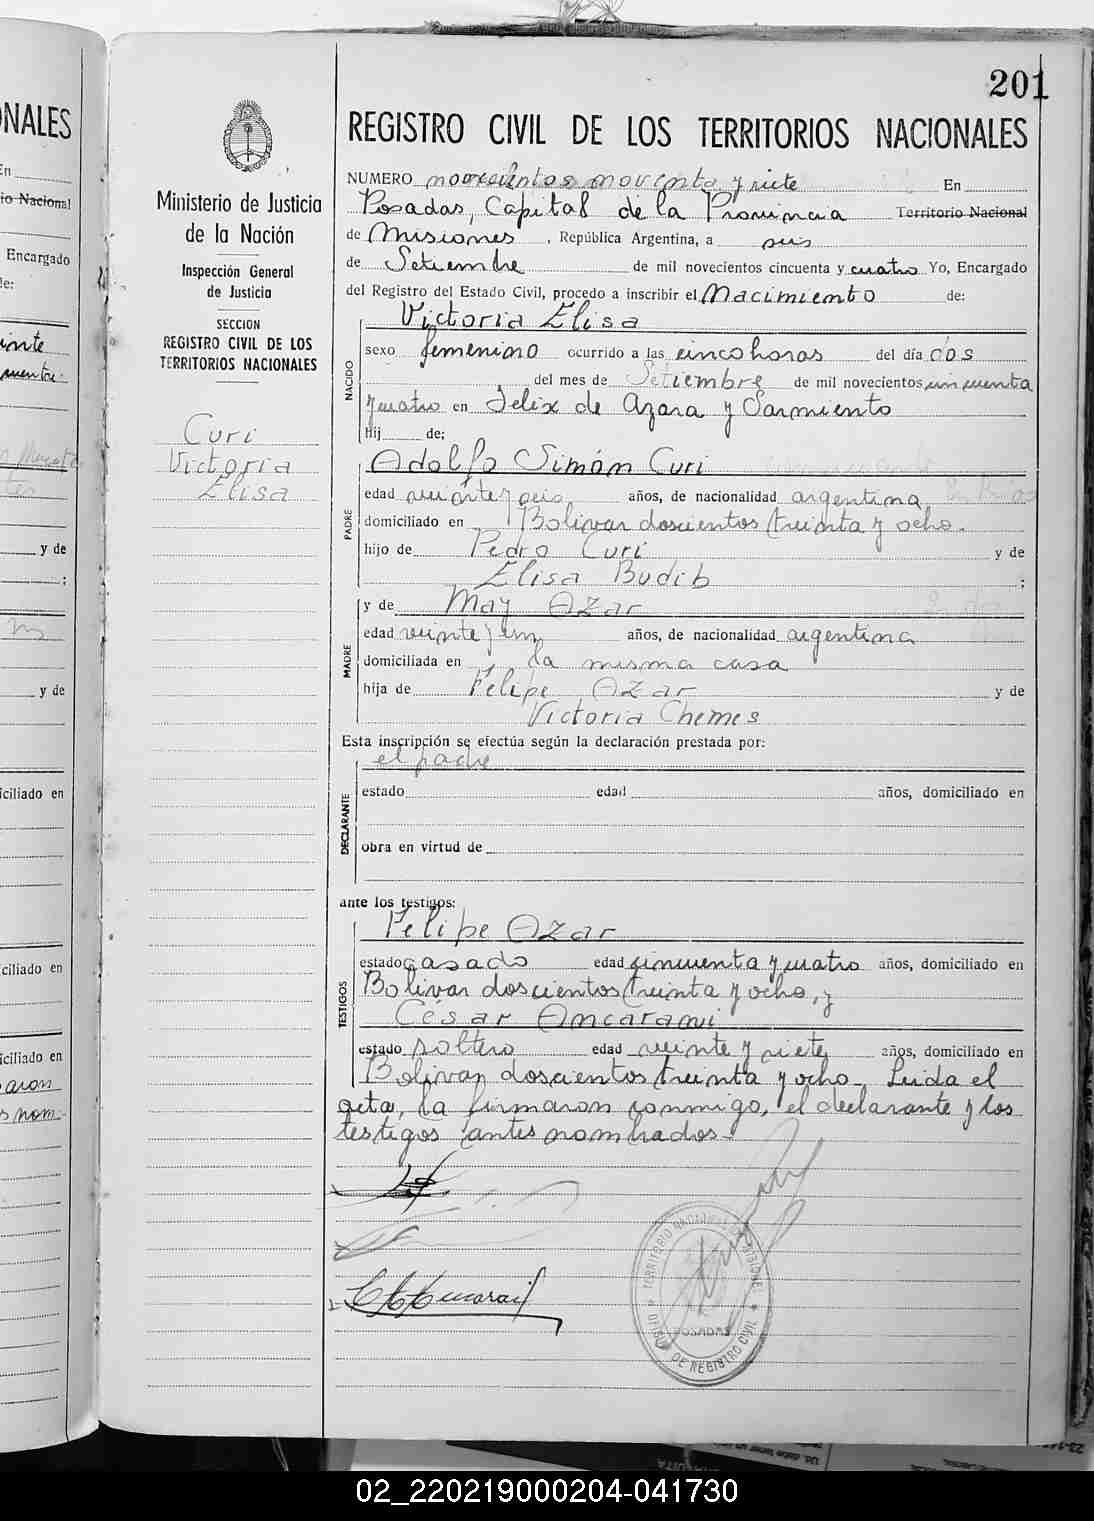 201
REGISTRO CIVIL DE LOS TERRITORIOS NACIONALES
Ministerio de Justicia
de la Nación
Inspección General
de Justicia
SECCION
REGISTRO CIVIL DE LOS
TERRITORIOS NACIONALES
Curi
Victoria
Elisa
NUMERO novecientos noventa y siete En
Posadas, Capital de la Provincia Territorio Nacional
de Misiones, República Argentina, a seis
de Setiembre de mil novecientos cincuenta y cuatro Yo, Encargado
del Registro del Estado Civil, procedo a inscribir el Nacimiento de:
NACIDO
Victoria Elisa
sexo femenino ocurrido a las cinco horas del día dos
del mes de Setiembre de mil novecientos cincuenta
y cuatro en Felix de Azara y Sarmiento
Hij de;
PADRE
Adolfo Simón Curi
edad veinte y seis años, de nacionalidad argentina
domiciliado en Bolivar doscientos treinta y ocho.
hijo de Pedro Curi y de
Elisa Budib ;
MADRE
y de May Azar
edad veinte y un años, de nacionalidad argentina
domiciliada en la misma casa
hija de Felipe Azar y de
Victoria Chemes
Esta inscripción se efectúa según la declaración prestada por:
DECLARANTE
el padre
estado edad años, domiciliado en
obra en virtud de
ante los testigos:
TESTIGOS
Felipe Azar
estado casado edad cincuenta y cuatro años, domiciliado en
Bolivar doscientos treinta y ocho, y
César Ancarani
estado soltero edad veinte y siete años, domiciliado en
Bolivar doscientos treinta y ocho. Leida el
acta, la firmaron conmigo, el declarante y los
testigos antes nombrados.-
TERRITORIO NACIONAL DE MISIONES
POSADAS
OFICINA DE REGISTRO CIVIL
ONALES
En
io Nacional
Encargado
de:
y de
;
y de
iciliado en
ciliado en
iciliado en
02_220219000204-041730